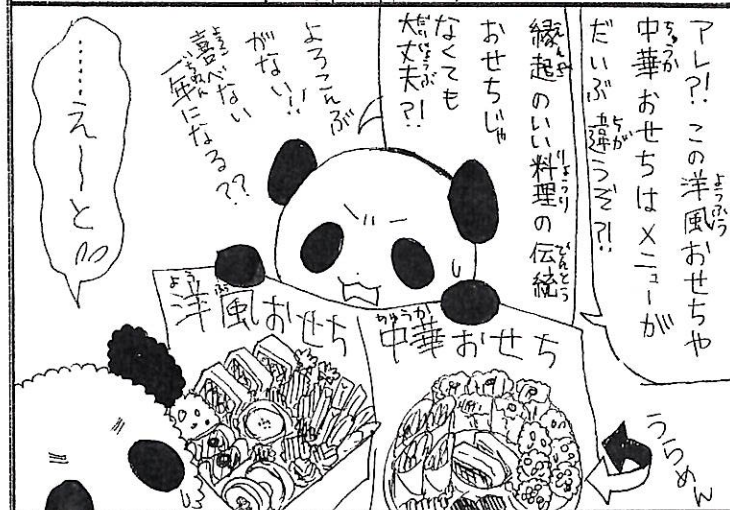 アレ?! この洋風おせちや
中華おせちはメニューが
だいぶ違うぞ?!
縁起のいい料理の伝統
おせちじゃ
なくても
大丈夫?!
よろこんぶ
がない!!
喜べない
一年になる??
……えーと
洋風おせち
中華おせち
うらめん